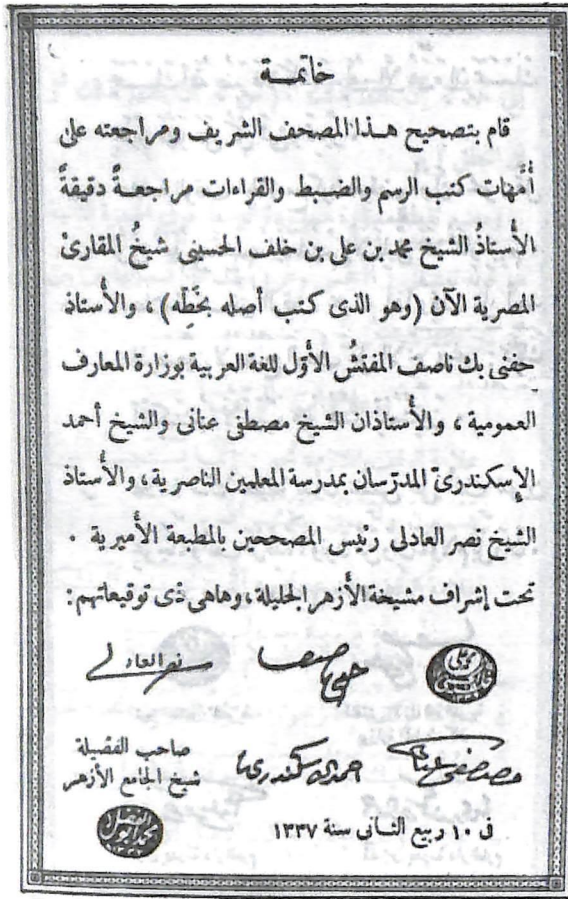 خاتمـــة
قام بتصحيح هـــذا المصحف الشريف ومراجعته على
أُمَّهات كتب الرسم والضـــبط والقراءات مراجعـــةً دقيقةً
الأستاذُ الشيخ محمد بن على بن خلف الحسينى شيخُ المقارئ
المصرية الآن (وهو الذى كتب أصله بخَطِّه) ، والأستاذ
حفنى بك ناصف المفتشُ الأوّل للغة العربية بوزارة المعارف
العمومية ، والأستاذان الشيخ مصطفى عنانى والشيخ أحمد
الإسكندرىّ المدرّسان بمدرسة المعلمين الناصرية ، والأستاذ
الشيخ نصر العادلى رئيس المصححين بالمطبعة الأميرية .
تحت إشراف مشيخة الأزهر الجليلة ، وهاهى ذى توقيعاتهم :
نصر العادلى
مصطفى عنانى احمد الاسكندرى
صاحب الفضيلة
شيخ الجامع الأزهر
محمد ابو الفضل
فى ١٠ ربيع الثانى سنة ١٣٣٧